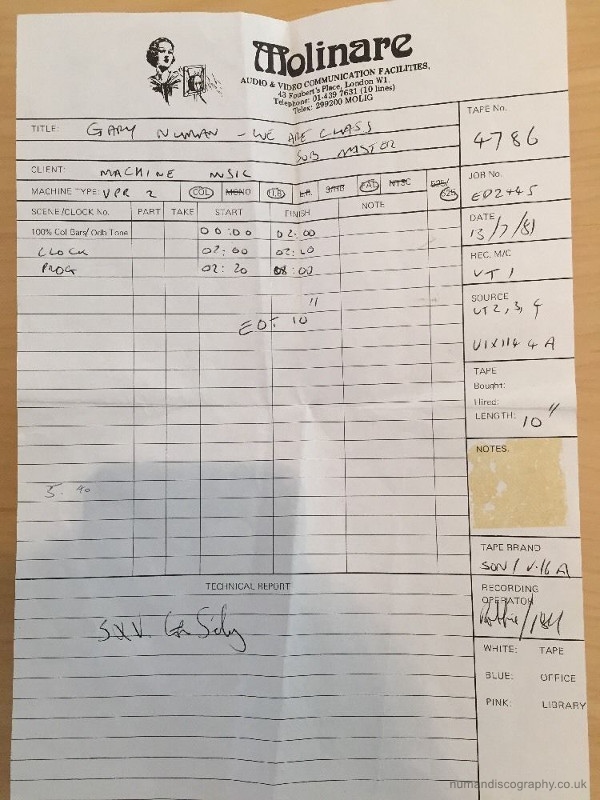 Molinare
AUDIO & VIDEO COMMUNICATION FACILITIES,
43 Foubert's Place, London W1.
Telephone: 01-439 7631 (10 lines)
Telex: 299200 MOLIG
TITLE: GARY NUMAN - WE ARE GLASS
SUB MASTER
CLIENT: MACHINE MUSIC
MACHINE TYPE: VPR 2 COL MONO PAL NTSC 625
SCENE/CLOCK No. PART TAKE START FINISH NOTE
100% Col Bars/ 0db Tone 00:00 02:00
CLOCK 02:00 02:20
PROG 02:20 08:00
EDT. 10"
5.40
TECHNICAL REPORT
TAPE No.
4786
JOB No.
ED2445
DATE
13/7/81
REC. M/C
VT 1
SOURCE
VT 2, 3, 4
TAPE
Bought:
Hired:
LENGTH: 10"
NOTES
TAPE BRAND
SONY V-16 A
RECORDING
OPERATOR
WHITE: TAPE
BLUE: OFFICE
PINK: LIBRARY
numandiscography.co.uk